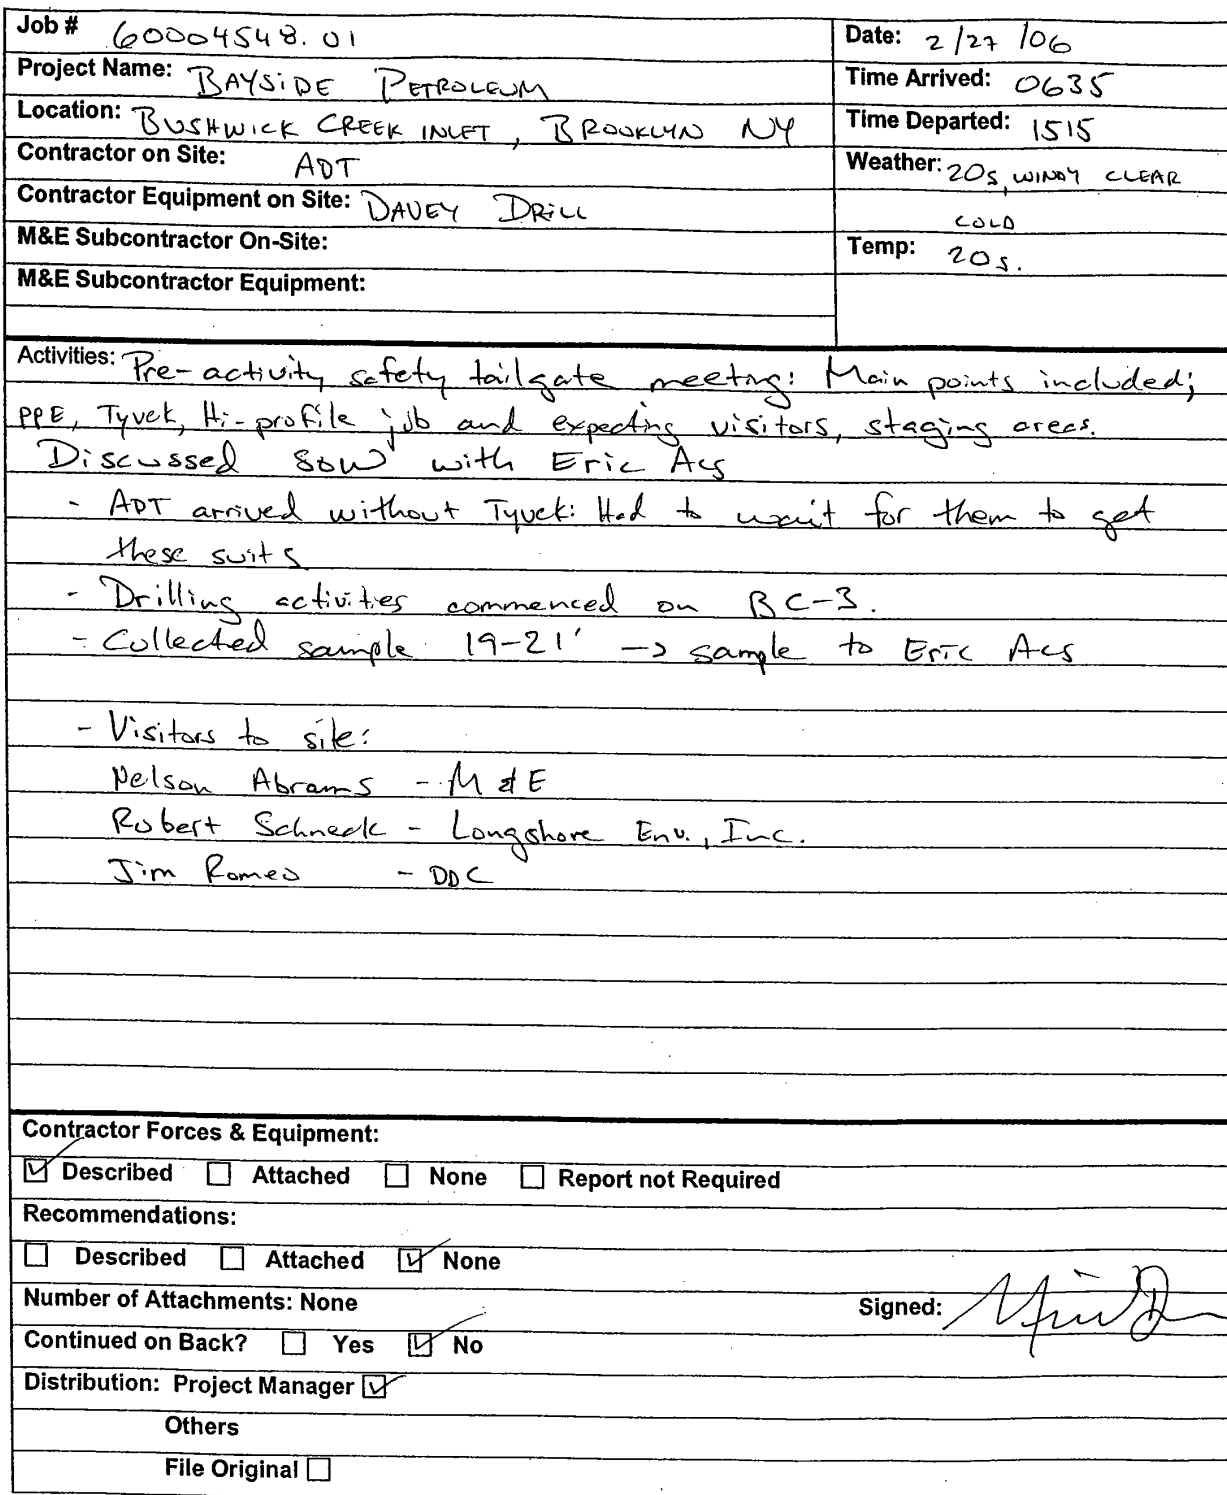 Job # 60004548.01
Date: 2/27/06
Project Name: BAYSIDE PETROLEUM
Time Arrived: 0635
Location: BUSHWICK CREEK INLET, BROOKLYN NY
Time Departed: 1515
Contractor on Site: ADT
Weather: 20s, WINDY CLEAR
COLD
Contractor Equipment on Site: DAVEY DRILL
M&E Subcontractor On-Site:
Temp: 20s.
M&E Subcontractor Equipment:
Activities: Pre-activity safety tailgate meeting: Main points included;
PPE, Tyvek, Hi-profile job and expecting visitors, staging areas.
Discussed SOW with Eric Acs
- ADT arrived without Tyvek: Had to wait for them to get
these suits
- Drilling activities commenced on BC-3.
- Collected sample 19-21' -> sample to Eric Acs
- Visitors to site:
Nelson Abrams - M&E
Robert Schneck - Longshore Env., Inc.
Jim Romeo - DDC
Contractor Forces & Equipment:
☑ Described ☐ Attached ☐ None ☐ Report not Required
Recommendations:
☐ Described ☐ Attached ☑ None
Number of Attachments: None
Signed:
Continued on Back? ☐ Yes ☑ No
Distribution: Project Manager ☑
Others
File Original ☐